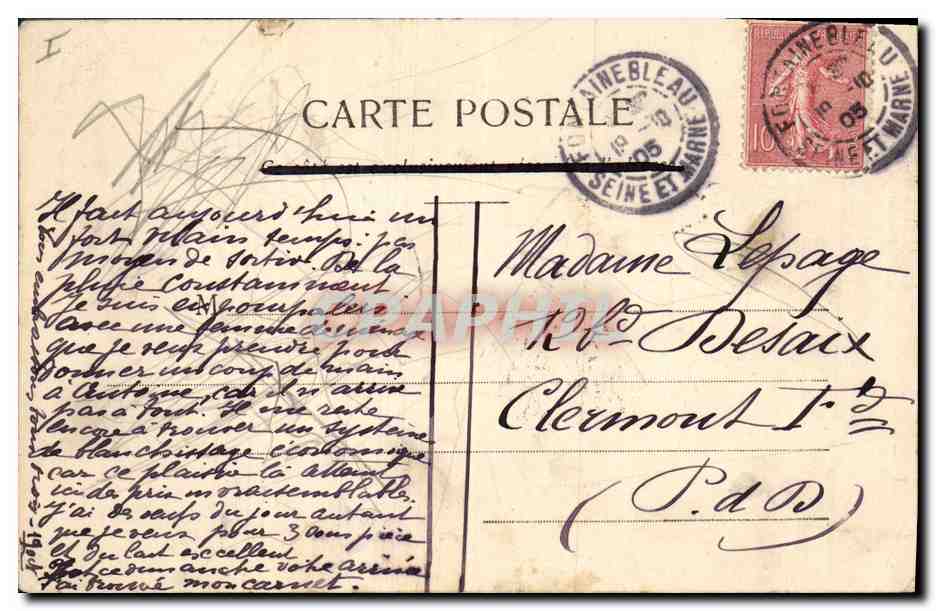 I
CARTE POSTALE
FONTAINEBLEAU
05
SEINE ET MARNE
FONTAINEBLEAU
05
SEINE ET MARNE
10
Il fait aujourd'hui un
fort vilain temps : pas
moyen de sortir. De la
pluie constamment
Je suis en pourparlers
avec une femme de
que je veux prendre pour
donner un coup de main
à Antoine, car il n'arrive
pas à tout. Il me reste
encore à trouver un système
de blanchissage économique
car ce plaisir là atteint
ici des prix invraisemblables.
J'ai des oeufs du jour autant
que je veux pour 3 sous pièce
et du lait excellent
ce dimanche votre arrivée
J'ai trouvé mon carnet.
Bon embrassons tous trois
M
GRAPHIL
Madame Lepage
12 Bd Desaix
Clermont Fd
(P. d D)